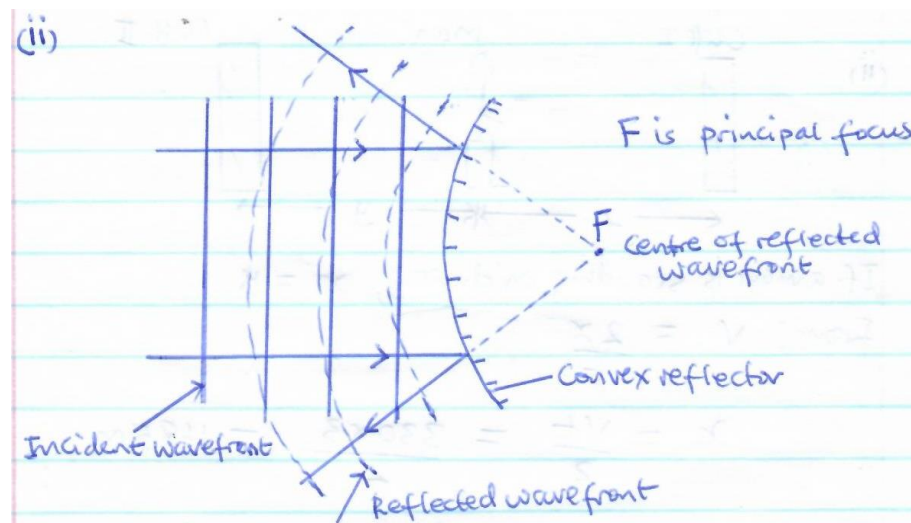 (ii)
F is principal focus
F
Centre of reflected
wavefront
Convex reflector
Incident wavefront
Reflected wavefront